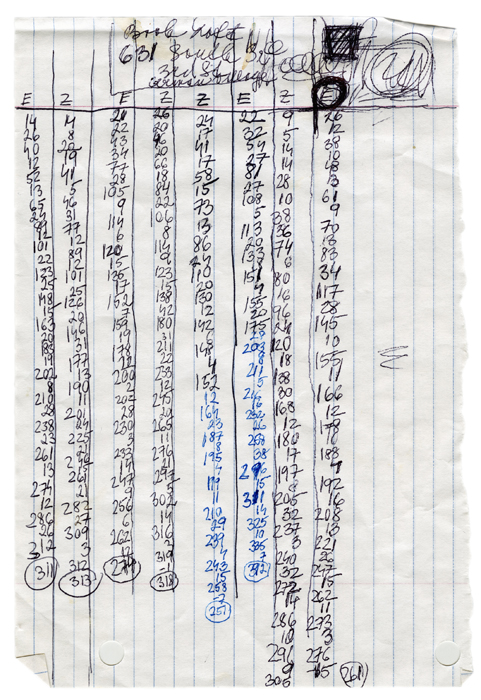 631 South
E Z E Z Z E Z E
14
26
40
12
52
13
65
24
12
101
22
123
25
148
15
163
20
19
202
8
210
28
238
23
261
13
274
12
286
26
311
4
8
41
5
46
31
77
12
89
12
101
25
126
20
146
31
177
13
190
11
201
24
225
21
282
27
309
3
312
313
22
43
34
77
28
105
9
114
6
120
15
135
17
152
7
159
19
178
22
200
2
202
28
230
3
233
14
247
9
256
6
262
17
279
26
20
46
20
66
18
84
22
106
8
114
9
123
15
138
42
180
31
211
22
233
12
245
20
265
11
276
21
297
5
302
14
316
3
319
-1
318
24
17
41
17
58
15
73
13
86
24
110
20
130
12
142
6
148
4
152
12
164
23
187
8
195
4
199
11
210
29
239
4
243
15
258
257
22
32
54
27
81
27
108
5
113
20
133
18
151
4
155
20
175
28
203
8
211
5
216
16
232
26
258
38
296
15
311
14
325
10
335
7
342
9
5
14
14
28
10
38
36
74
6
80
16
96
24
120
18
138
30
168
12
180
17
197
8
205
32
237
3
240
32
272
14
286
10
296
9
305
26
12
38
10
48
13
61
9
70
13
83
34
117
28
145
10
155
11
166
12
178
10
188
4
192
16
208
13
221
26
247
15
262
11
273
3
276
15
261